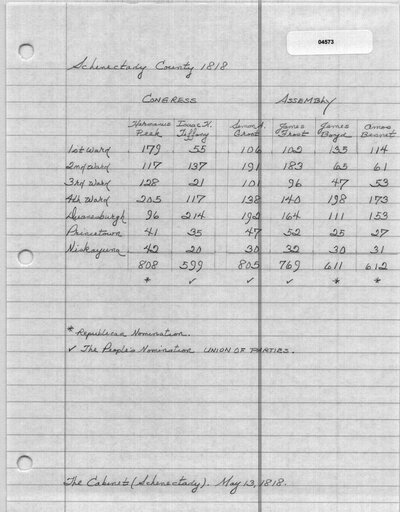 04573
Schenectady County 1818
CONGRESS ASSEMBLY
Hermanus Isaac H. Simon A. James James Amos
Peek Tiffany Groot Frost Boyd
1st Ward 179 55 106 102 135 114
2nd Ward 117 137 191 183 65 61
3rd Ward 128 21 101 96 47 53
4th Ward 205 117 138 140 198 173
Duanesburgh 96 214 192 164 111 153
Princetown 41 35 47 52 25 27
Niskayuna 42 20 30 32 30 31
808 599 805 769 611 612
* ✓ ✓ ✓ * *
* Republican Nomination.
✓ The People's Nomination UNION OF PARTIES.
The Cabinet (Schenectady). May 13, 1818.